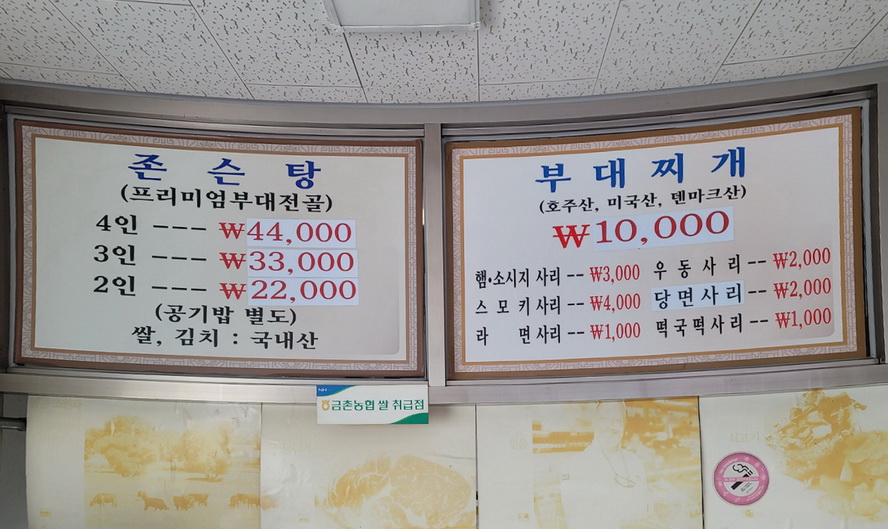 존슨탕
(프리미엄부대전골)
4인 --- ₩44,000
3인 --- ₩33,000
2인 --- ₩22,000
(공기밥 별도)
쌀, 김치 : 국내산
부대찌개
(호주산, 미국산, 덴마크산)
₩10,000
햄·소시지 사리 -- ₩3,000 우동사리 -- ₩2,000
스모키 사리 -- ₩4,000 당면사리 -- ₩2,000
라면사리 -- ₩1,000 떡국떡사리 -- ₩1,000
NH
금촌농협 쌀 취급점